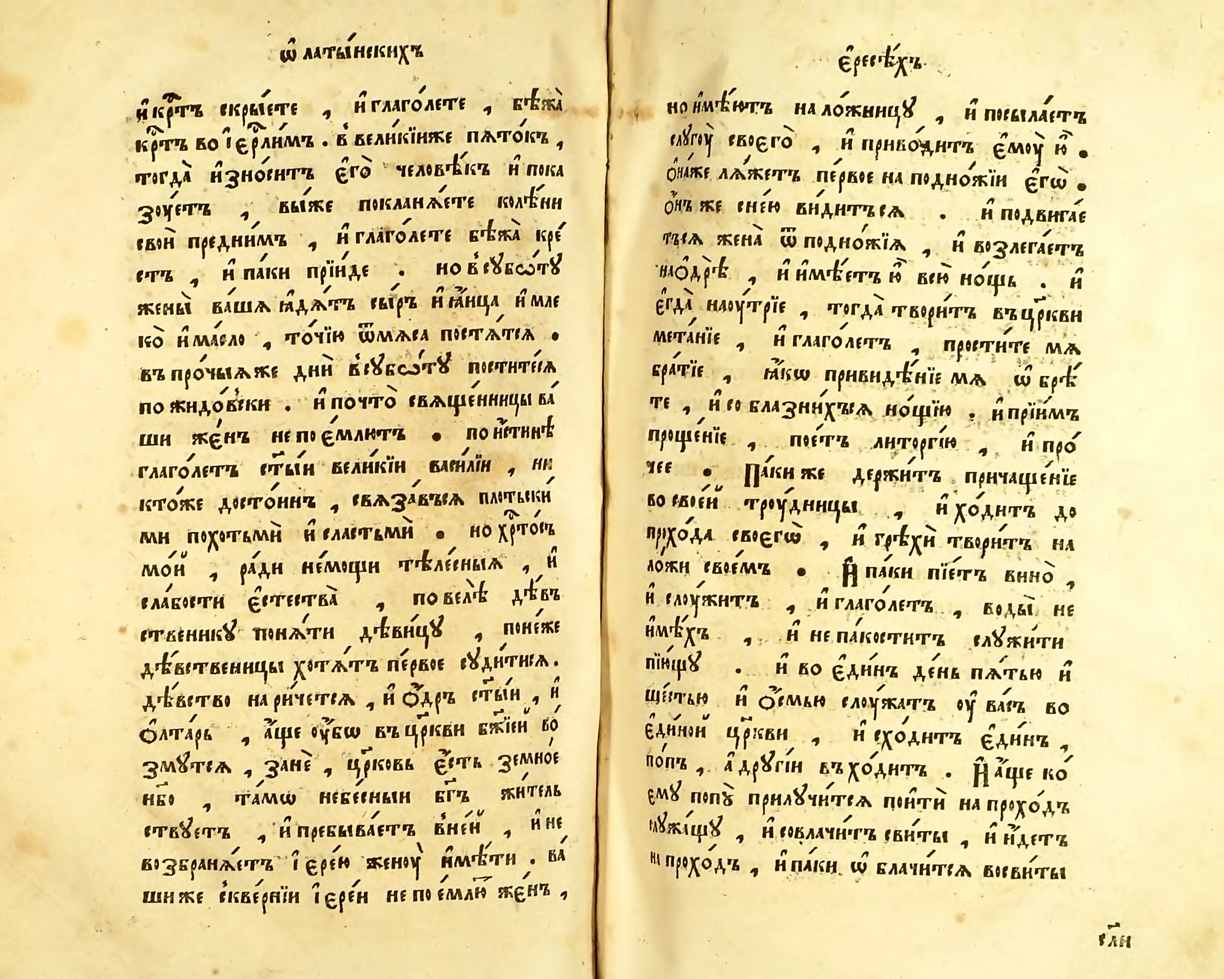 ѿ латы́нскихъ
и҆ крⷭ҇тъ скры́ете , и҆ глаго́лете , бѣжа̀
крⷭ҇тъ во і҆ерⷭ҇лимъ . в вели́кїиже пѧто́къ ,
тогда̀ и҆зно́ситъ є҆го̀ человѣ́къ и҆ пока
зоуетъ , вы́же покланѧ́ете колѣ́ни
своѝ предни́мъ , и҆ глаго́лете бѣжа̀ кре́
стъ , и҆ па́ки прїи́де . но в сꙋбѡ́тꙋ
жены̀ ва́шѧ ꙗ҆дѧ́тъ сы́ръ и҆ ꙗ҆́ица и҆ мле
ко̀ и҆ ма́сло , то́чїю ѿмѧ́са постѧ́тсѧ .
въ про́чыѧже днѝ в сꙋбѡ́тꙋ пости́тесѧ
по жидо́вски . и҆ почто̀ свѧще́нницы ва́
ши же́нъ не пое́млютъ . по и҆́стинѣ
глаго́летъ ст҃ы́и вели́кїи васи́лїи , ни
кто́же досто́инъ , свѧза́всѧ пло́тьски
ми похотьмѝ и҆ сластьмѝ . но хрⷭ҇то́съ
мо́й , ра́ди не́мощи тѣле́сныѧ , и҆
сла́бости є҆стества̀ , по велѣ̀ дѣ́въ
ственикꙋ понѧ́ти дѣви́цꙋ , поне́же
дѣ́вственицы хотѧ́тъ пе́рвое сꙋди́тисѧ .
дѣ́вство нариче́тсѧ , и҆ ѻ҆́дръ ст҃ы́и , и҆
ѻ҆лта́рь , а҆́ще ᲂу҆́бѡ въ цр҃кви бж҃їей во́
змꙋтсѧ , занѐ , цр҃ковь є҆́сть земно́е
нб҃о , та́мѡ небе́сныи бг҃ъ жи́тель
ствꙋетъ , и҆ пребыва́етъ в не́й , и҆ не
возбранѧ́етъ і҆ере́ю женоу̀ и҆мѣ́ти . ва́
ши же скве́рнїи і҆ере́и не пое́млю же́нъ ,
є҆ресѣ́хъ
но и҆мѣ́ютъ нало́жницꙋ , и҆ посыла́етъ
слꙋгоу̀ своего̀ , и҆ приво́дитъ є҆моу̀ ю҆̀ .
ѻ҆на́же лѧ́жетъ пе́рвое на подно́жїи є҆гѡ̀ .
ѻ҆́нъ же снѐю ви́дитъсѧ . и҆ подвига́е
тъсѧ жена̀ ѿ подно́жїѧ , и҆ возлега́етъ
на ѻ҆́дрѣ , и҆ и҆мѣ́етъ ю҆̀ всю̀ но́щь . и҆
є҆гда̀ наоу́трїе , тогда̀ твори́тъ въ цр҃кви
мета́нїе , и҆ глаго́летъ , прости́те мѧ
бра́тїе , ꙗ҆́кѡ привидѣ́нїе мѧ ѡ҆ брѣ́
те , и҆ со блазни́хъсѧ но́щїю . и҆ прїи́мъ
проще́нїе , пое́тъ литоргі́ю , и҆ про́
чее . Па́ки же держи́тъ причаще́нїе
во свое́й троу́дницы , и҆ хо́дитъ до
прхо́да своегѡ̀ , и҆ грѣхѝ твори́тъ на
ло́жи свое́мъ . И҆ па́ки пїе́тъ вино̀ ,
и҆ слоу́житъ , и҆ глаго́летъ , воды̀ не
и҆мѣ́хъ , и҆ не па́коститъ слꙋжи́ти
пїю́щꙋ . и҆ во є҆ди́нъ де́нь пѧ́тью и҆
ше́стью и҆ ѻ҆́смью слоу́жатъ ᲂу҆ ва́съ во
є҆ди́ной цр҃кви , и҆ схо́дитъ є҆ди́нъ ,
по́пъ , а҆ дрꙋгі́и въ хо́дитъ . И҆ а҆́ще ко́
емꙋ попꙋ̀ прилꙋчи́тсѧ пойтѝ на прохо́дъ
слꙋжа́щꙋ , и҆ совлачи́тъ сви́ты , и҆ и҆́детъ
на прохо́дъ , и҆ па́ки ѡ҆ блачи́тсѧ восви́ты